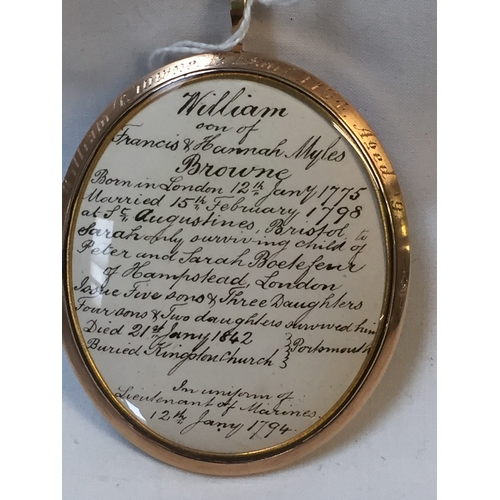 William
son of
Francis & Hannah Myles
Browne
Born in London 12th Jany 1775
Married 15th February 1798
at St Augustines, Bristol, to
Sarah only surviving child of
Peter and Sarah Boetefeur
of Hampstead, London
Issue Five sons & Three Daughters
Four sons & Two daughters survived him
Died 21st Jany 1842
Buried Kingston Church } Portsmouth
In uniform of
Lieutenant of Marines
12th Jany 1794.
William
Aged